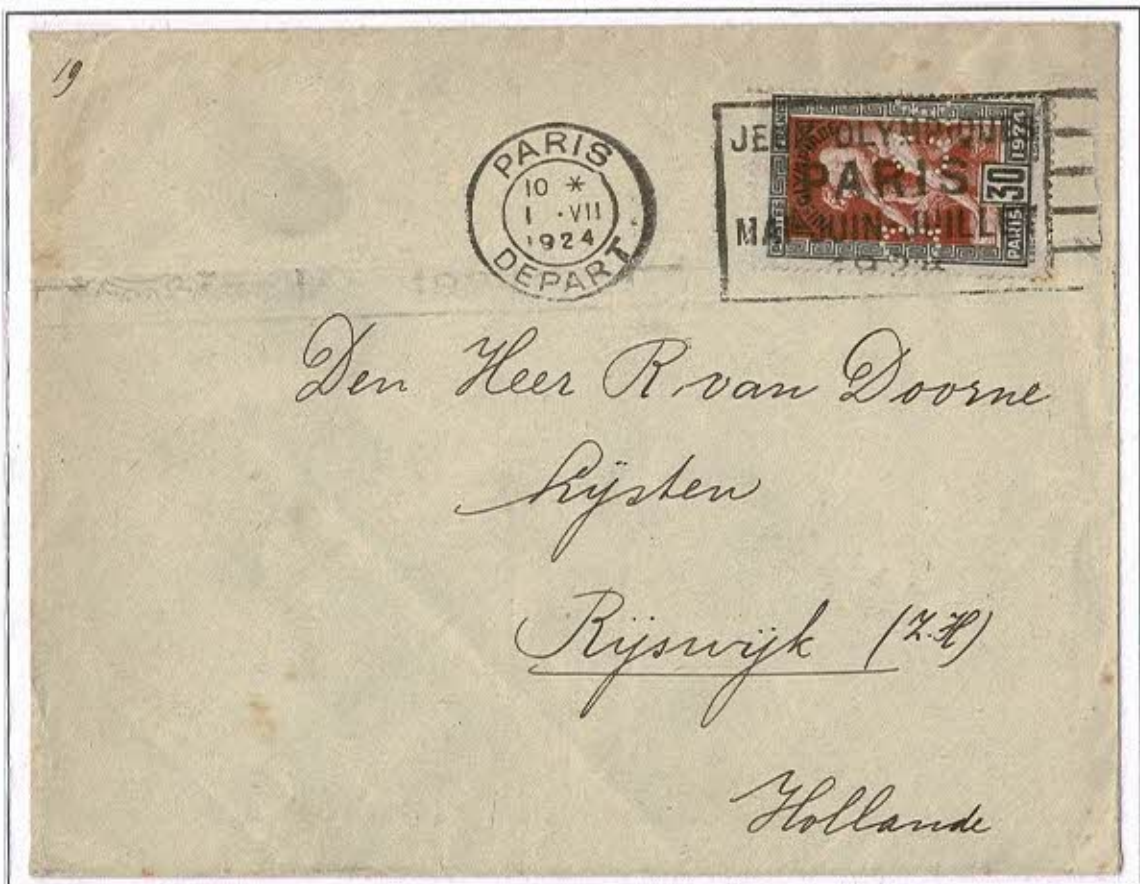 19
PARIS
10 *
1 · VII
1924
DEPART
JE OLYMPIQUE
PARIS
MAI JUIN JUILL
1924
1924
30
PARIS
Den Heer R van Doorne
Lijsten
Rijswijk (Z.H)
Hollande